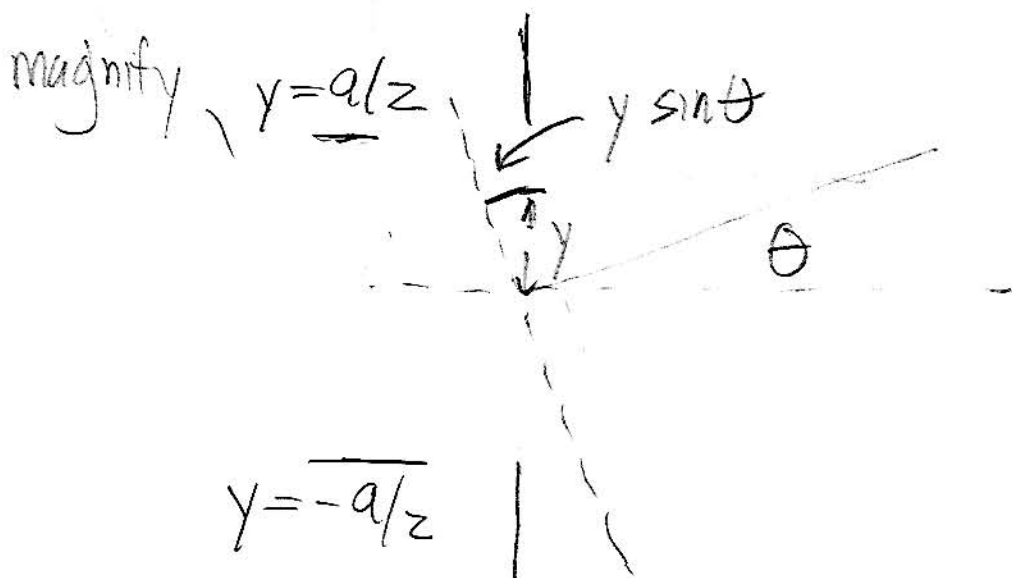 magnify
y = a/2
y sinθ
y
θ
y = -a/2